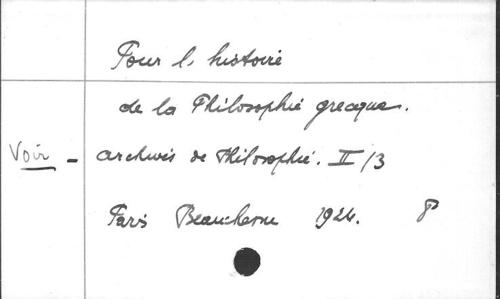 Pour l'histoire
de la Philosophie grecque.
Voir - archives de Philosophie. II/3
Paris Beauchesne 1924. 8°